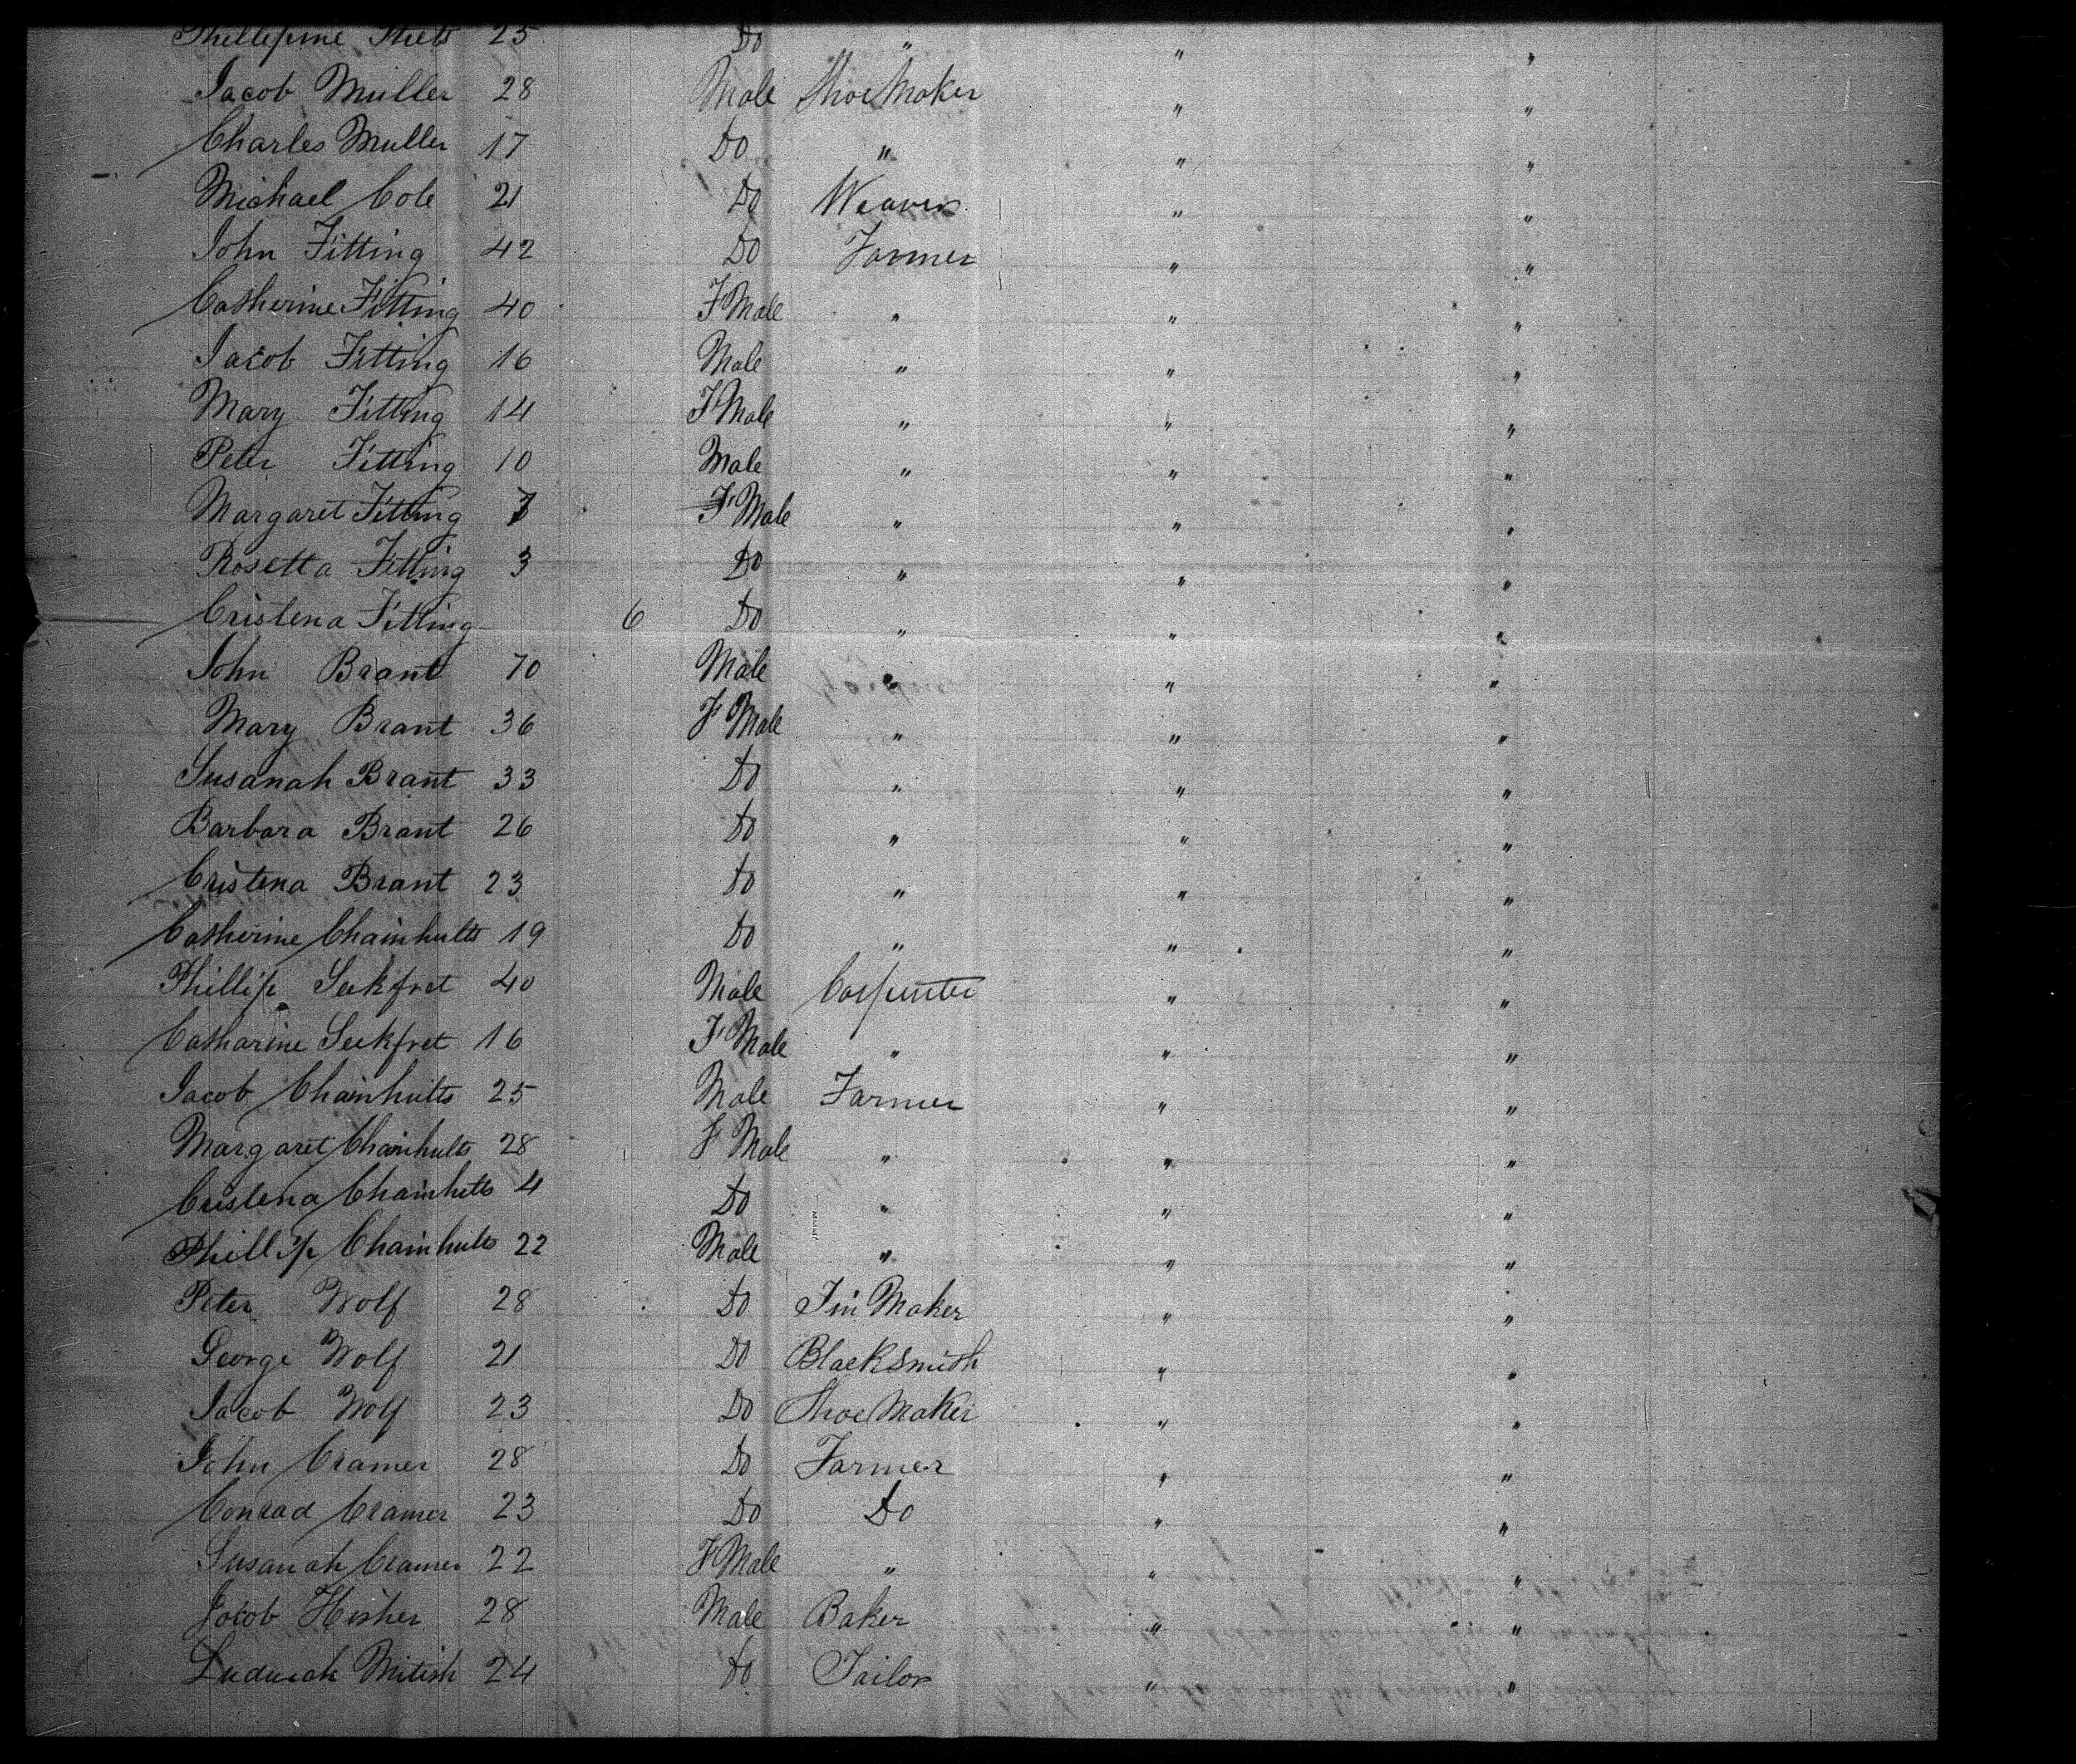 Phillipine 25 Do " " "
Jacob Muller 28 Male Shoe Maker " "
Charles Muller 17 Do " " "
Michael Cole 21 Do Weaver " "
John Fitting 42 Do Farmer " "
Catherine Fitting 40 F Male " " "
Jacob Fitting 16 Male " " "
Mary Fitting 14 F Male " " "
Peter Fitting 10 Male " " "
Margaret Fitting 7 F Male " " "
Rosetta Fitting 3 Do " " "
Cristena Fitting 6 Do " " "
John Brant 70 Male " " "
Mary Brant 36 F Male " " "
Susanah Brant 33 Do " " "
Barbara Brant 26 Do " " "
Cristena Brant 23 Do " " "
Catherine Chainhults 19 Do " " "
Phillip Seekfret 40 Male Carpenter " "
Catharine Seekfret 16 F Male " " "
Jacob Chainhults 25 Male Farmer " "
Margaret Chainhults 28 F Male " " "
Cristena Chainhults 4 Do " " "
Phillip Chainhults 22 Male " " "
Peter Wolf 28 Do Tin Maker " "
George Wolf 21 Do Blacksmith " "
Jacob Wolf 23 Do Shoe Maker " "
John Cramer 28 Do Farmer " "
Conrad Cramer 23 Do Do " "
Susanah Cramer 22 F Male " " "
Jacob Hisher 28 Male Baker " "
Mitish 24 Do Tailor " "